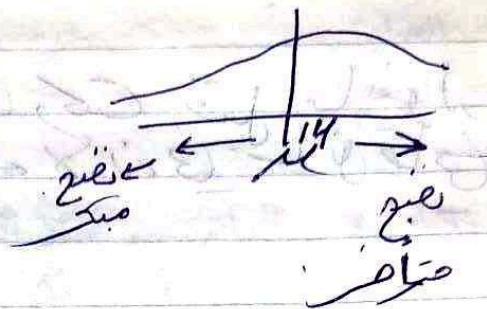 14
نضج
مبكر
نضج
متأخر